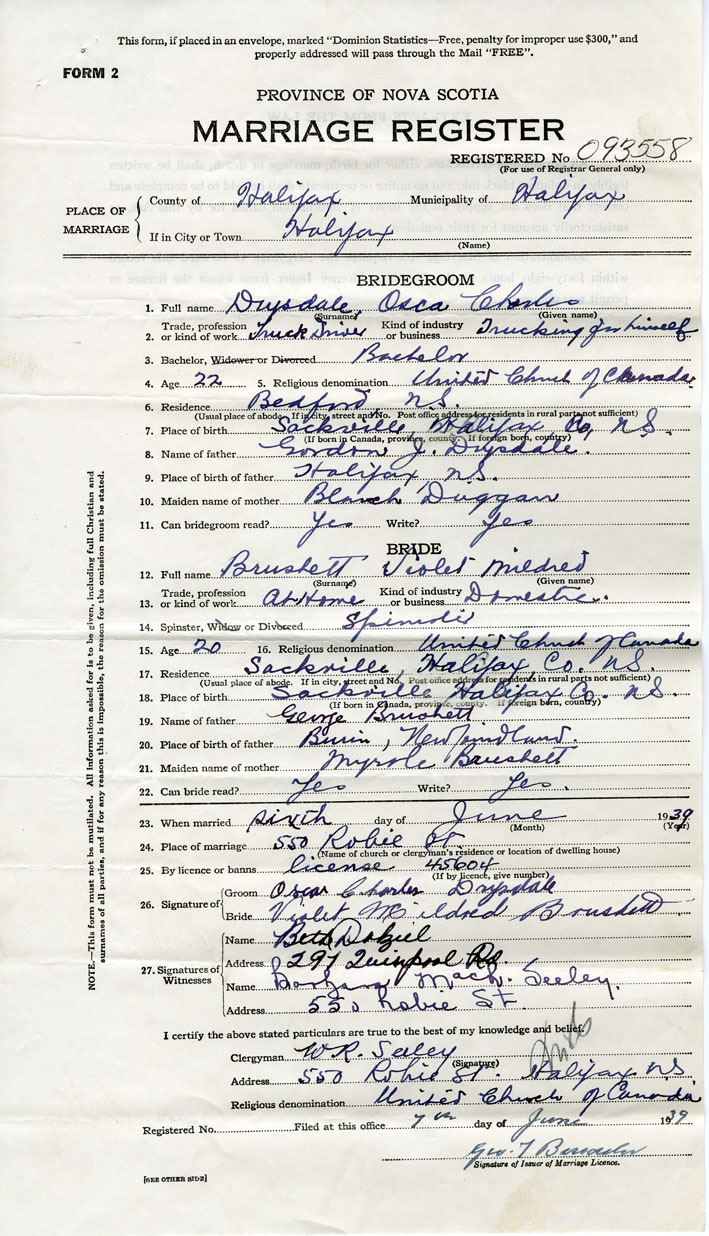 This form, if placed in an envelope, marked "Dominion Statistics—Free, penalty for improper use $300," and
properly addressed will pass through the Mail "FREE".
FORM 2
PROVINCE OF NOVA SCOTIA
MARRIAGE REGISTER
REGISTERED No 093558
(For use of Registrar General only)
PLACE OF MARRIAGE
County of Halifax Municipality of Halifax
If in City or Town Halifax
(Name)
BRIDEGROOM
1. Full name Drysdale, Osca Charles
(Surname) (Given name)
2. Trade, profession or kind of work Truck Driver Kind of industry or business Trucking for himself
3. Bachelor, Widower or Divorced Bachelor
4. Age 22 5. Religious denomination United Church of Canada
6. Residence Bedford, N.S.
(Usual place of abode. If in city, street and No. Post office address for residents in rural parts not sufficient)
7. Place of birth Sackville, Halifax Co, N.S.
(If born in Canada, province, county. If foreign born, country)
8. Name of father Gordon J. Drysdale.
9. Place of birth of father Halifax N.S.
10. Maiden name of mother Blanch Duggan
11. Can bridegroom read? Yes Write? Yes
BRIDE
12. Full name Brushett Violet Mildred
(Surname) (Given name)
13. Trade, profession or kind of work At Home Kind of industry or business Domestic.
14. Spinster, Widow or Divorced Spinster
15. Age 20 16. Religious denomination United Church of Canada
17. Residence Sackville, Halifax Co. N.S.
(Usual place of abode. If in city, street and No. Post office address for residents in rural parts not sufficient)
18. Place of birth Sackville Halifax Co. N.S.
(If born in Canada, province, county. If foreign born, country)
19. Name of father George Brushett
20. Place of birth of father Burin, Newfoundland.
21. Maiden name of mother Brushett
22. Can bride read? Yes Write? Yes.
23. When married sixth day of June 1939
(Month) (Year)
24. Place of marriage 550 Robie St.
(Name of church or clergyman's residence or location of dwelling house)
25. By licence or banns license 45604
(If by licence, give number)
26. Signature of
Groom Oscar Charles Drysdale
Bride Violet Mildred Brushett
27. Signatures of Witnesses
Name Beth Dalziel
Address 291 Quinpool Rd.
Name Barbara Seeley.
Address 550 Robie St.
I certify the above stated particulars are true to the best of my knowledge and belief.
Clergyman W.R. Seeley
(Signature)
Address 550 Robie St. Halifax N.S.
Religious denomination United Church of Canada
Registered No. Filed at this office 7th day of June 1939
Geo. T
Signature of Issuer of Marriage Licence.
[SEE OTHER SIDE]
NOTE.—This form must not be mutilated. All information asked for is to be given, including full Christian and
surnames of all parties, and if for any reason this is impossible, the reason for the omission must be stated.